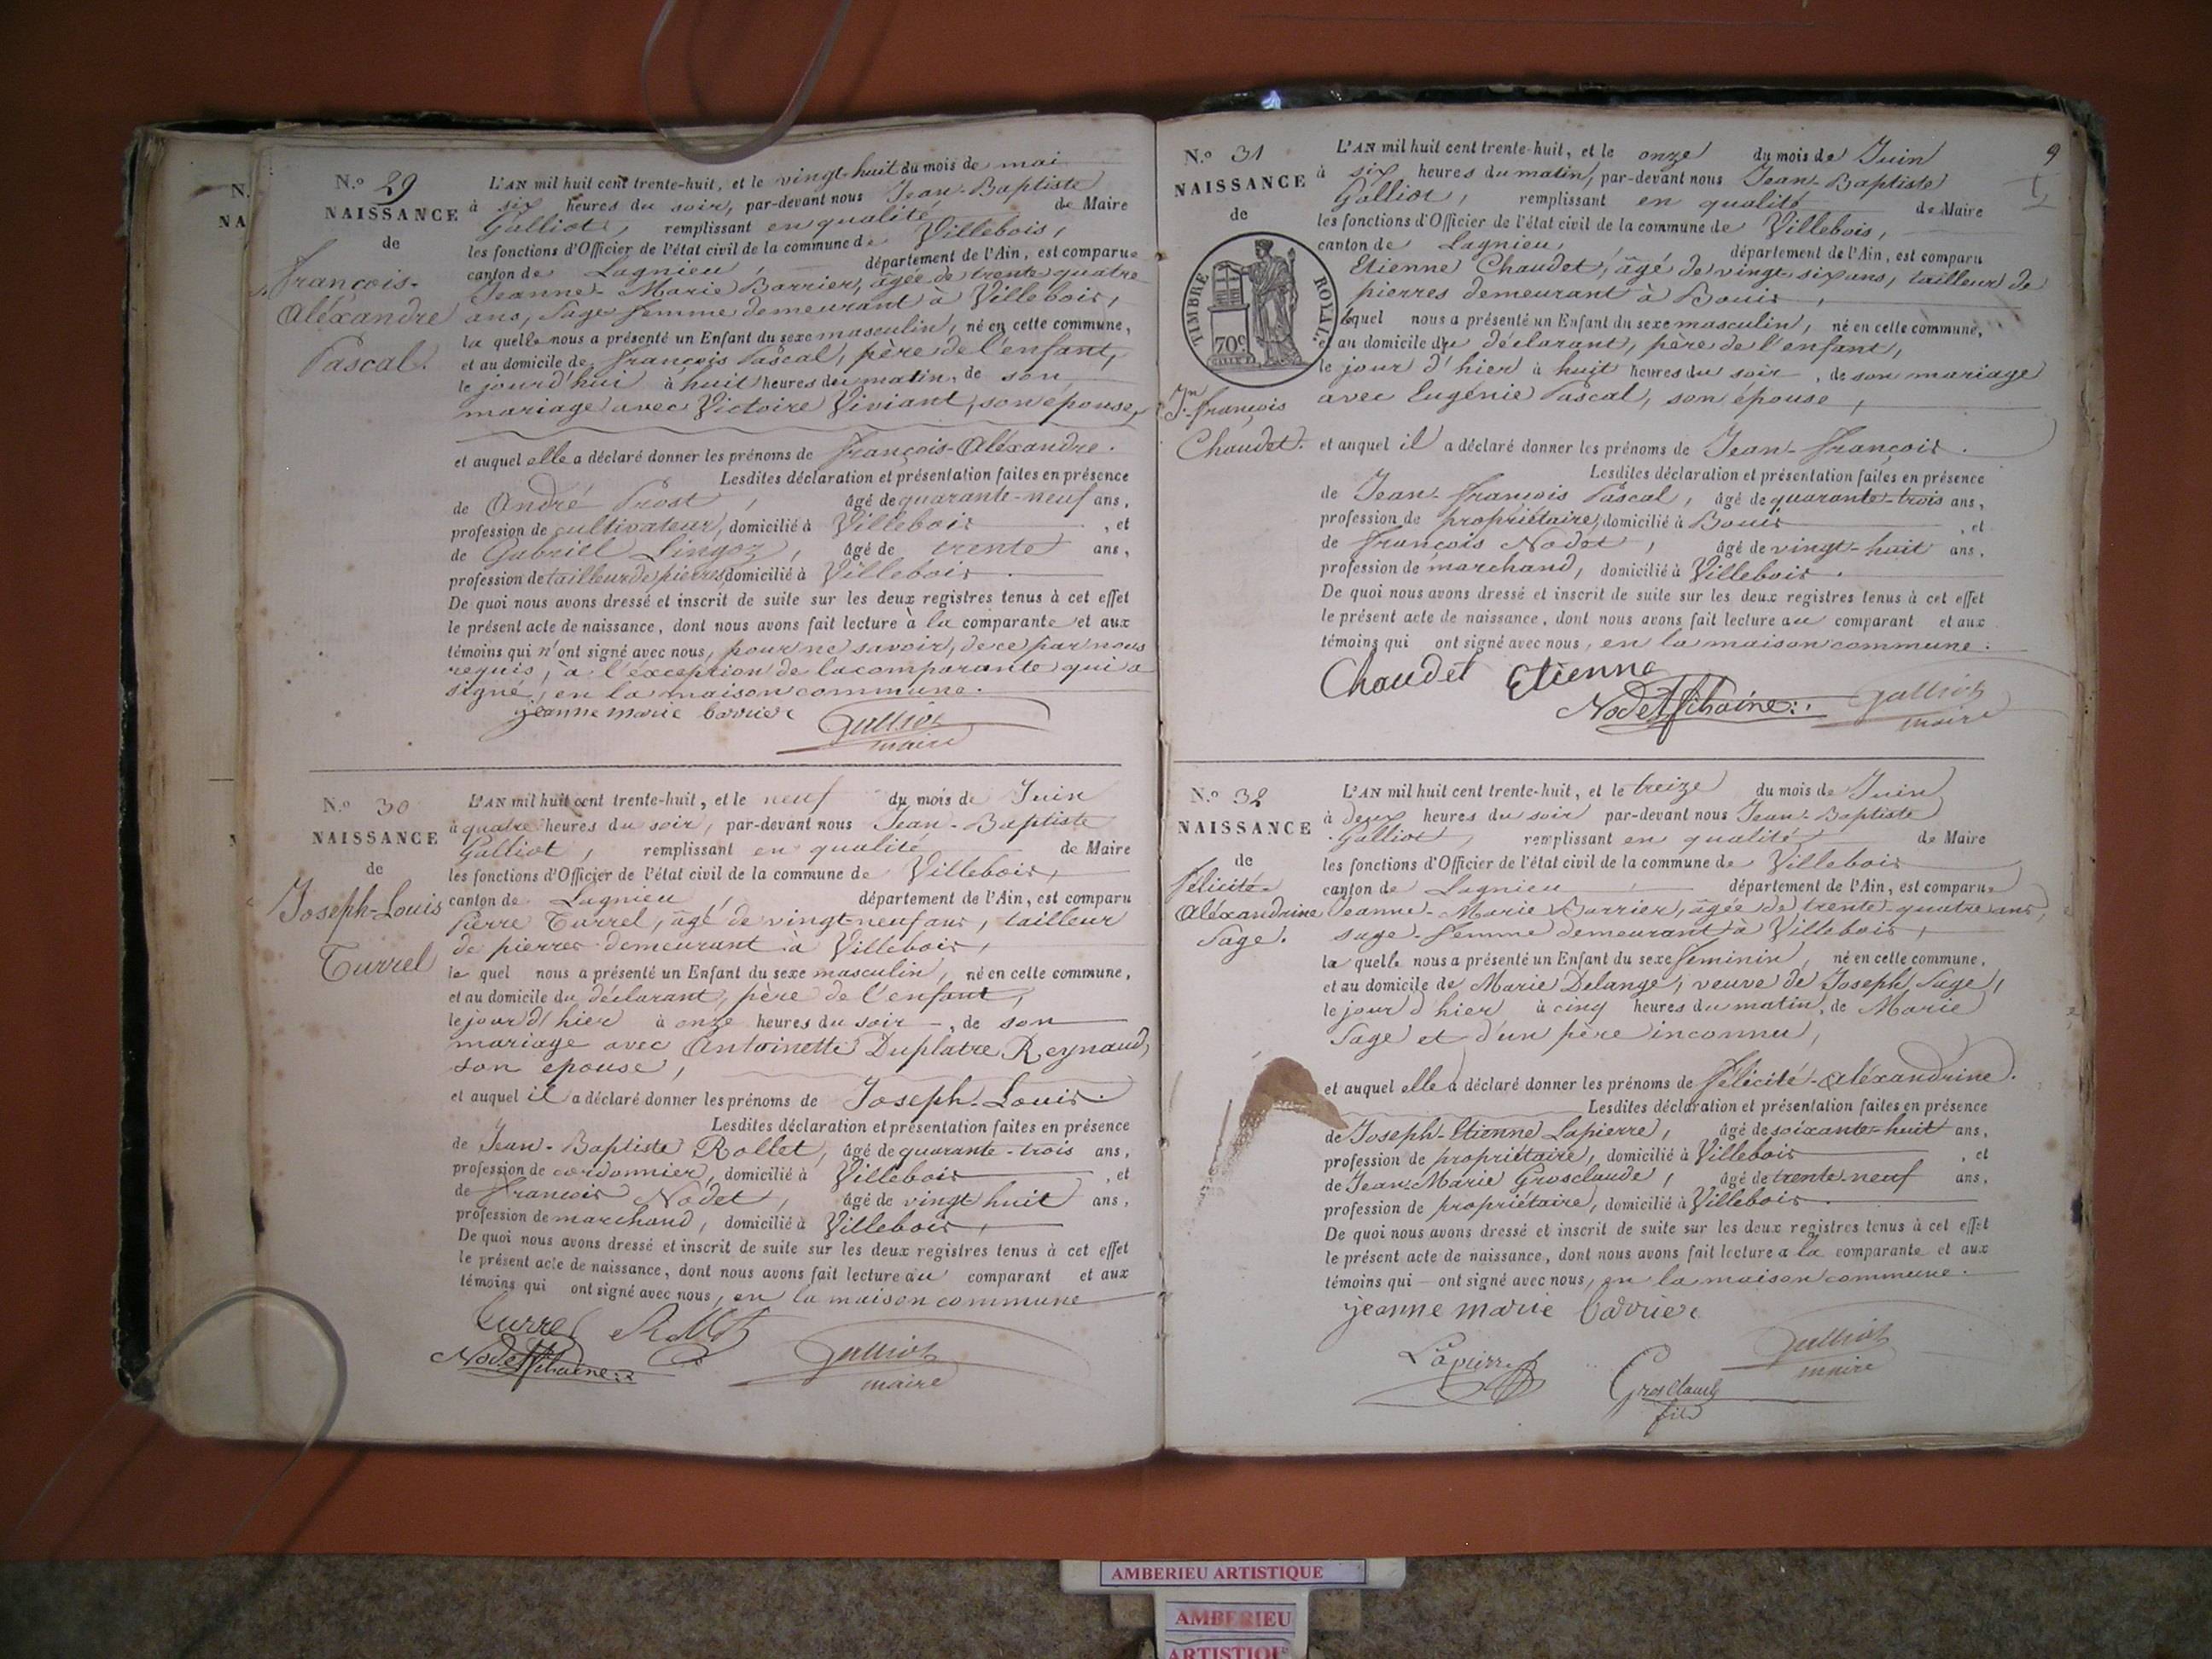 N.º 29
NAISSANCE
de
François-
Aléxandre
Pascal.
L'AN mil huit cent trente-huit, et le vingt-huit du mois de mai
à six heures du soir, par-devant nous Jean-Baptiste
Galliot, remplissant en qualité de Maire
les fonctions d'Officier de l'état civil de la commune de Villebois,
canton de Lagnieu, département de l'Ain, est comparue
Jeanne-Marie Barrier, âgée de trente quatre
ans, Sage femme demeurant à Villebois,
la quelle nous a présenté un Enfant du sexe masculin, né en cette commune,
et au domicile de François Pascal, père de l'enfant,
le jourd'hui à huit heures du matin, de son
mariage avec Victoire Viviant, son épouse,
et auquel elle a déclaré donner les prénoms de François-Aléxandre.
Lesdites déclaration et présentation faites en présence
de André Prost, âgé de quarante-neuf ans,
profession de cultivateur, domicilié à Villebois, et
de Gabriel Lingoz, âgé de trente ans,
profession de tailleur de pierres, domicilié à Villebois.
De quoi nous avons dressé et inscrit de suite sur les deux registres tenus à cet effet
le présent acte de naissance, dont nous avons fait lecture à la comparante et aux
témoins qui n'ont signé avec nous, pour ne savoir, de ce par nous
requis, à l'exception de la comparante qui a
signé, en la maison commune.
jeanne marie barrier Galliot
maire
N.º 30
NAISSANCE
de
Joseph-Louis
Turrel
L'AN mil huit cent trente-huit, et le neuf du mois de Juin
à quatre heures du soir, par-devant nous Jean-Baptiste
Galliot, remplissant en qualité de Maire
les fonctions d'Officier de l'état civil de la commune de Villebois,
canton de Lagnieu, département de l'Ain, est comparu
Pierre Turrel, âgé de vingt-neuf ans, tailleur
de pierres demeurant à Villebois,
le quel nous a présenté un Enfant du sexe masculin, né en cette commune,
et au domicile du déclarant, père de l'enfant,
le jour d'hier à onze heures du soir, de son
mariage avec Antoinette Duplatre Reynaud,
son epouse,
et auquel il a déclaré donner les prénoms de Joseph-Louis.
Lesdites déclaration et présentation faites en présence
de Jean-Baptiste Rollet, âgé de quarante-trois ans,
profession de cordonnier, domicilié à Villebois, et
de François Nodet, âgé de vingt huit ans,
profession de marchand, domicilié à Villebois,
De quoi nous avons dressé et inscrit de suite sur les deux registres tenus à cet effet
le présent acte de naissance, dont nous avons fait lecture au comparant et aux
témoins qui ont signé avec nous, en la maison commune
Turrel Rollet
Nodet Galliot
maire
9
N.º 31
NAISSANCE
de
TIMBRE ROYAL
70c
Jn François
Chaudet.
L'AN mil huit cent trente-huit, et le onze du mois de Juin
à six heures du matin, par-devant nous Jean-Baptiste
Galliot, remplissant en qualité de Maire
les fonctions d'Officier de l'état civil de la commune de Villebois,
canton de Lagnieu, département de l'Ain, est comparu
Etienne Chaudet, âgé de vingt-six ans, tailleur de
pierres demeurant à Bouis,
lequel nous a présenté un Enfant du sexe masculin, né en cette commune,
et au domicile du déclarant, père de l'enfant,
le jour d'hier à huit heures du soir, de son mariage
avec Eugénie Pascal, son épouse,
et auquel il a déclaré donner les prénoms de Jean-François.
Lesdites déclaration et présentation faites en présence
de Jean-François Pascal, âgé de quarante-trois ans,
profession de propriétaire, domicilié à Bouis, et
de François Nodet, âgé de vingt-huit ans,
profession de marchand, domicilié à Villebois.
De quoi nous avons dressé et inscrit de suite sur les deux registres tenus à cet effet
le présent acte de naissance, dont nous avons fait lecture au comparant et aux
témoins qui ont signé avec nous, en la maison commune.
Chaudet Etienne
Nodet Galliot
maire
N.º 32
NAISSANCE
de
Félicité-
Aléxandrine
Sage.
L'AN mil huit cent trente-huit, et le treize du mois de Juin
à deux heures du soir par-devant nous Jean-Baptiste
Galliot, remplissant en qualité de Maire
les fonctions d'Officier de l'état civil de la commune de Villebois
canton de Lagnieu, département de l'Ain, est comparue
Jeanne-Marie Barrier, âgée de trente-quatre ans,
sage-femme demeurant à Villebois,
la quelle nous a présenté un Enfant du sexe féminin, né en cette commune,
et au domicile de Marie Delange, veuve de Joseph Sage,
le jour d'hier à cinq heures du matin, de Marie
Sage et d'un père inconnu,
et auquel elle a déclaré donner les prénoms de Félicité-Aléxandrine.
Lesdites déclaration et présentation faites en présence
de Joseph-Etienne Lapierre, âgé de soixante-huit ans,
profession de propriétaire, domicilié à Villebois, et
de Jean-Marie Grosclaude, âgé de trente-neuf ans,
profession de propriétaire, domicilié à Villebois.
De quoi nous avons dressé et inscrit de suite sur les deux registres tenus à cet effet
le présent acte de naissance, dont nous avons fait lecture a la comparante et aux
témoins qui ont signé avec nous, en la maison commune.
jeanne marie barrier
Lapierre Grosclaude Galliot
fils maire
AMBERIEU ARTISTIQUE
AMBERIEU
ARTISTIQUE